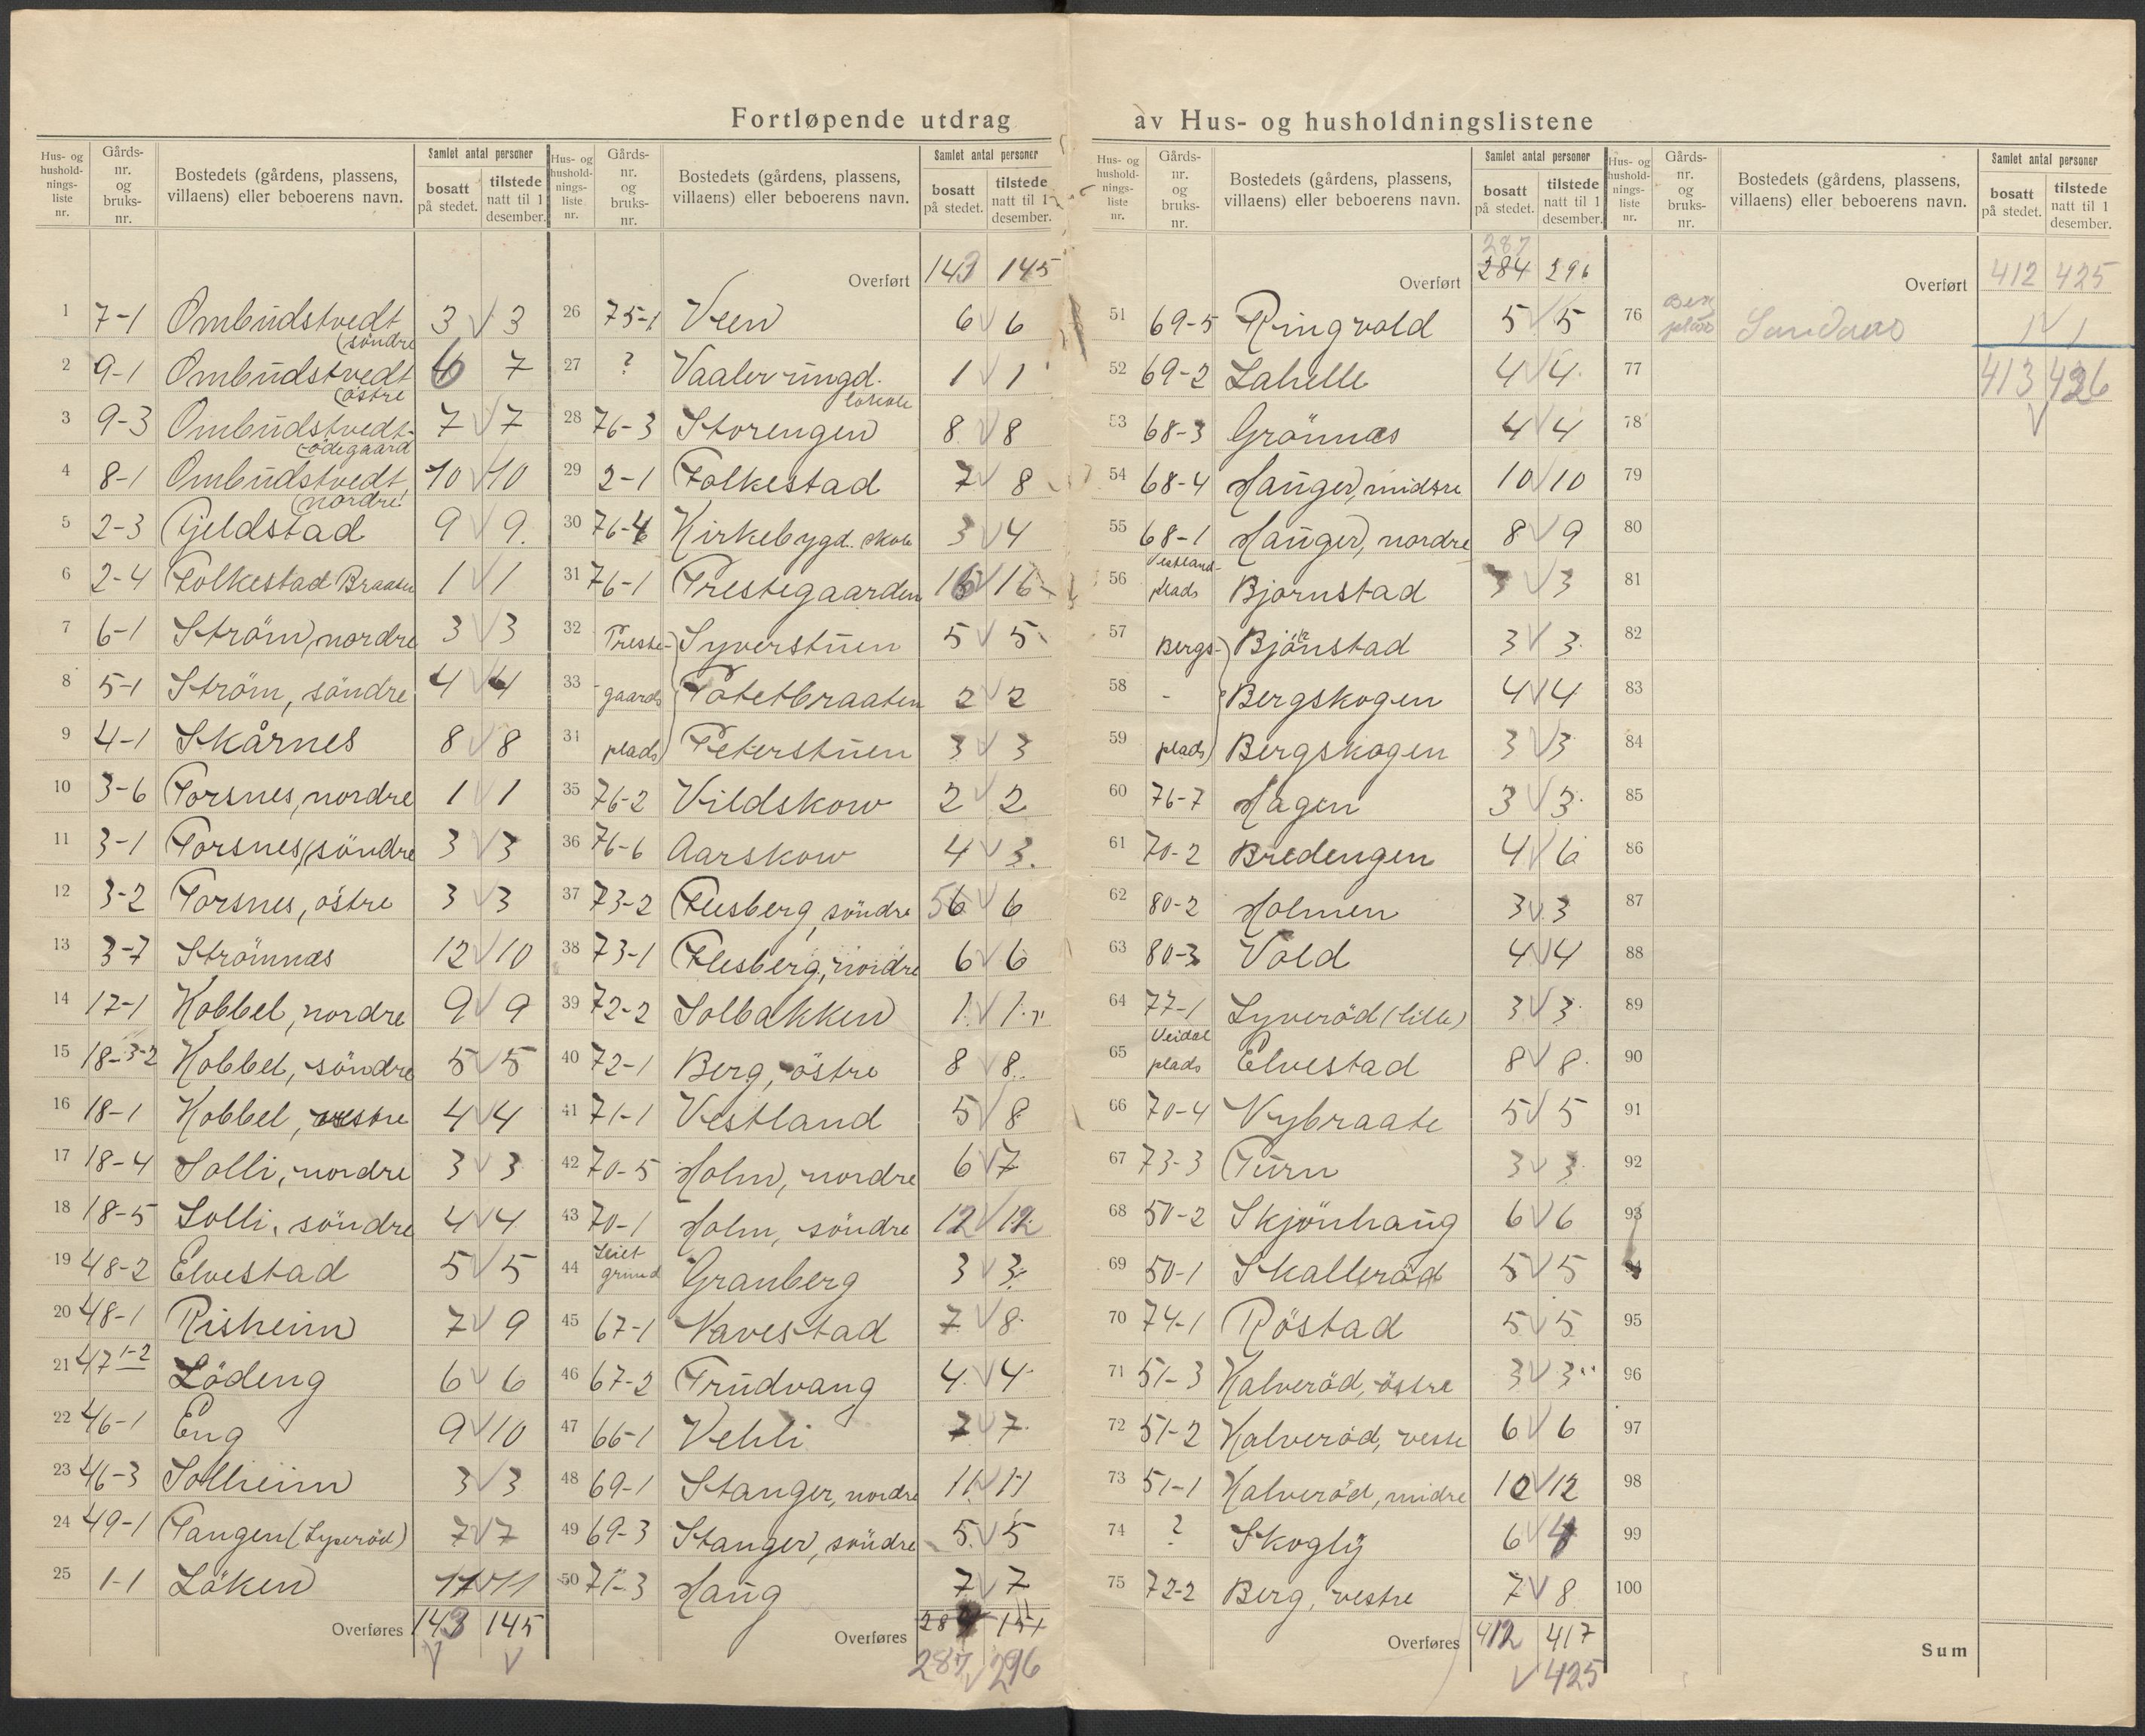 Fortløpende utdrag av Hus- og husholdningslistene
Hus- og husholdnings-liste nr. | Gårds-nr. og bruks-nr. | Bostedets (gårdens, plassens, villaens) eller beboerens navn. | Samlet antal personer | bosatt på stedet. | tilstede natt til 1 desember.
1 7-1 Ombudstvedt (söndre 3 V 3
2 9-1 Ombudstvedt (östre 6 7
3 9-3 Ombudstvedt- (ödegaard 7 V 7
4 8-1 Ombudstvedt (nordre 10 V 10
5 2-3 Gjeldstad 9 V 9
6 2-4 Folkestad Braaten 1 V 1
7 6-1 Ström, nordre 3 V 3
8 5-1 Ström, söndre 4 V 4
9 4-1 Skårnes 8 V 8
10 3-6 Torsnes, nordre 1 V 1
11 3-1 Torsnes, söndre 3 V 3
12 3-2 Torsnes, östre 3 V 3
13 3-7 Strömnæs 12 V 10
14 17-1 Kobbel, nordre 9 V 9
15 18-3-2 Kobbel, söndre 5 V 5
16 18-1 Kobbel, vestre 4 V 4
17 18-4 Solli, nordre 3 V 3
18 18-5 Solli, söndre 4 V 4
19 48-2 Elvestad 5 V 5
20 48-1 Risheim 7 V 9
21 47 1-2 Lödeng 6 V 6
22 46-1 Eng 9 V 10
23 46-3 Solheim 3 V 3
24 49-1 Tangen (Lyseröd) 7 V 7
25 1-1 Löken 11 V 11
Overføres 143 145
V V
Hus- og husholdnings-liste nr. | Gårds-nr. og bruks-nr. | Bostedets (gårdens, plassens, villaens) eller beboerens navn. | Samlet antal personer | bosatt på stedet. | tilstede natt til 1 desember.
Overført 143 145
26 75-1 Veen 6 V 6
27 ? Vaaler ungd. lokale 1 V 1
28 76-3 Storengen 8 V 8
29 2-1 Folkestad 7 V 8
30 76-4 Kirkebygd. skole 3 V 4
31 76-1 Prestegaarden 16 V 16
32 Preste- Syverstuen 5 V 5
33 gaards Potetbraaten 2 V 2
31 plads) Peterstuen 3 V 3
35 76-2 Vildskow 2 V 2
36 76-6 Aarskow 4 V 3
37 73-2 Flesberg, söndre 6 V 6
38 73-1 Flesberg, nordre 6 V 6
39 72-2 Solbakken 1 V 1
40 72-1 Berg, östre 8 V 8
41 71-1 Vestland 5 V 8
42 70-5 Holm, nordre 6 V 7
43 70-1 Holm, söndre 12 V 12
44 grund Granberg 3 V 3
45 67-1 Navestad 7 V 8
46 67-2 Trudvang 4 V 4
47 66-1 Vehli 7 V 7
48 69-1 Stanger, nordre 11 V 11
49 69-3 Stanger, söndre 5 V 5
50 71-3 Haug 7 V 7
Overføres 284 151
287 V 296
Hus- og husholdnings-liste nr. | Gårds-nr. og bruks-nr. | Bostedets (gårdens, plassens, villaens) eller beboerens navn. | Samlet antal personer | bosatt på stedet. | tilstede natt til 1 desember.
287
Overført 284 296
51 69-5 Ringvold 5 V 5
52 69-2 Labelle 4 V 4
53 68-3 Grönnæs 4 V 4
54 68-4 Hauger, midtre 10 V 10
55 68-1 Hauger, nordre 8 V 9
56 Vestland- plads Bjornstad 3 V 3
57 Bergs- Bjönstad 3 V 3
58 - Bergskogen 4 V 4
59 plads) Bergskogen 3 V 3
60 76-7 Hagen 3 V 3
61 70-2 Bredengen 4 V 6
62 80-2 Holmen 3 V 3
63 80-3 Vold 4 V 4
64 77-1 Lyveröd (lille) 3 V 3
65 Veidal plads Elvestad 8 V 8
66 70-4 Nybraate 5 V 5
67 73-3 Turn 3 V 3
68 50-2 Skjönhaug 6 V 6
69 50-1 Skalleröd 5 V 5
70 74-1 Röstad 5 V 5
71 51-3 Kalveröd, östre 3 V 3
72 51-2 Kalveröd, vestre 6 V 6
73 51-1 Kalveröd, midre 10 V 12
74 ? Skogly 6 V 4
75 72-2 Berg, vestre 7 V 8
Overføres 412 417
V 425
Hus- og husholdnings-liste nr. | Gårds-nr. og bruks-nr. | Bostedets (gårdens, plassens, villaens) eller beboerens navn. | Samlet antal personer | bosatt på stedet. | tilstede natt til 1 desember.
Overført 412 425
76 plass Sandaas 1 V 1
77 413 426
78 V
79
80
81
82
83
84
85
86
87
88
89
90
91
92
93
94
95
96
97
98
99
100
Sum